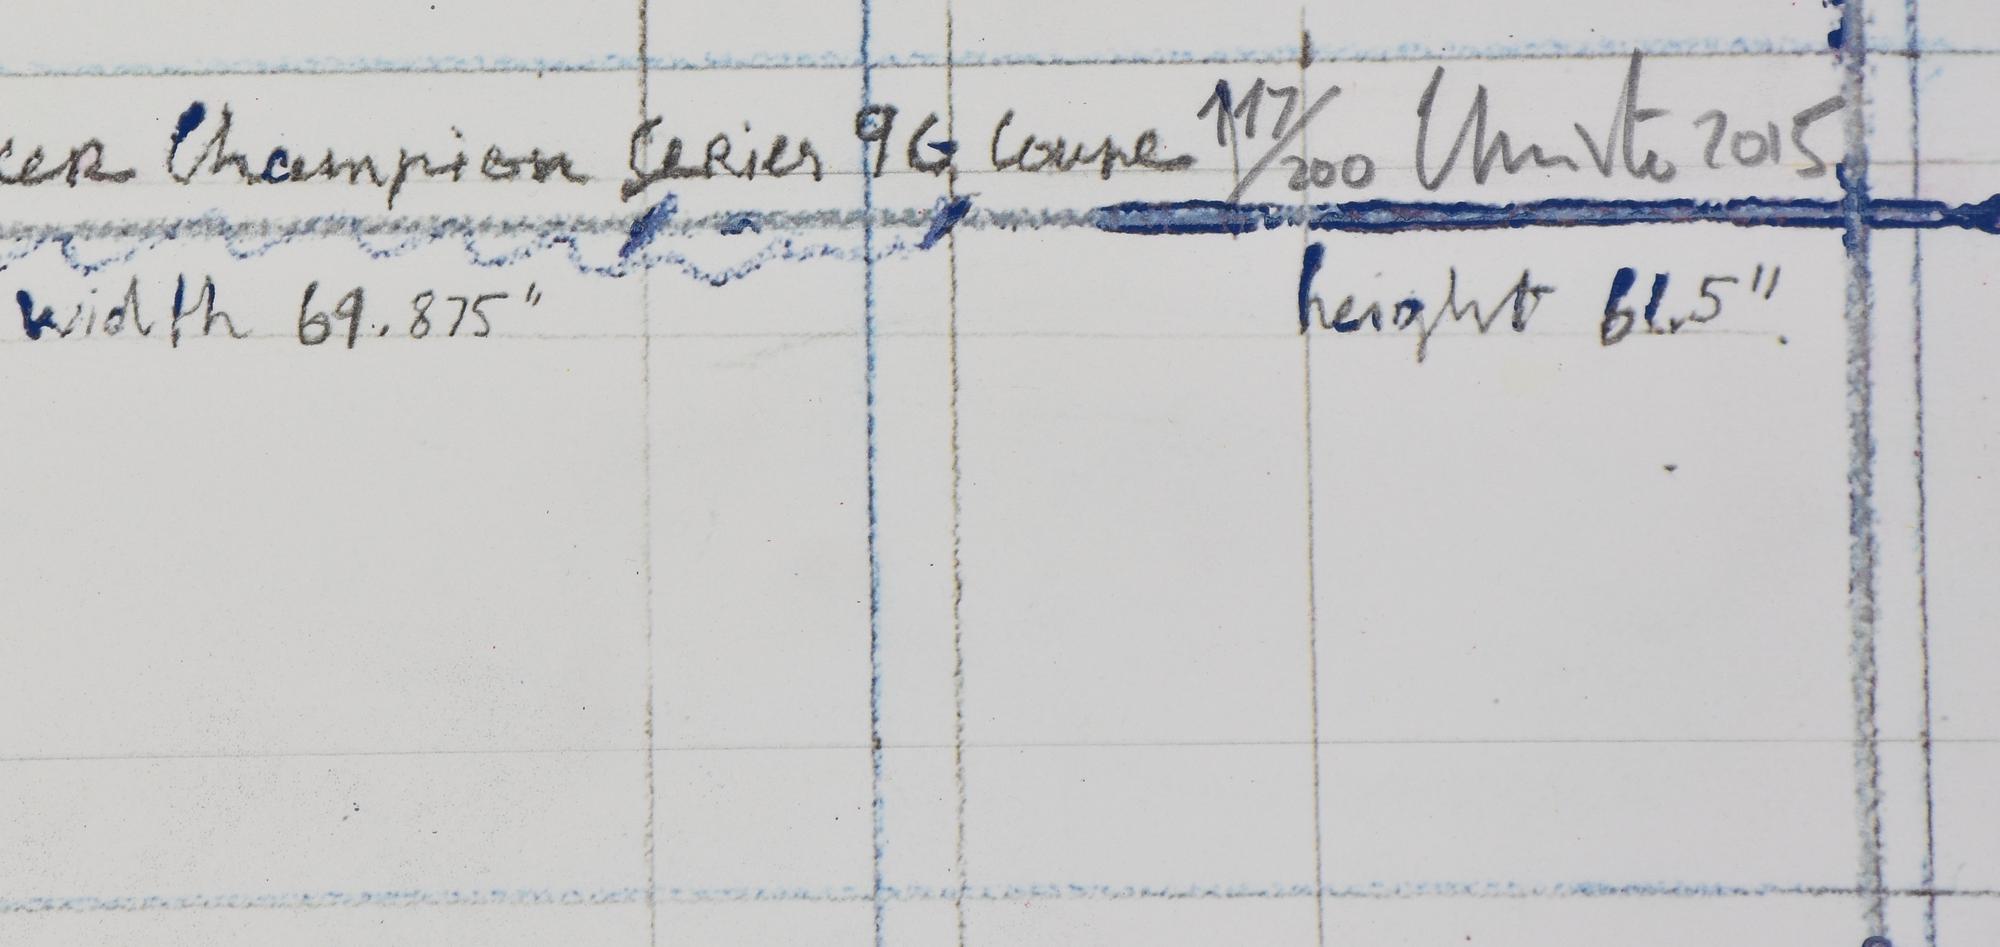 ker Champion Series 9G Coupe 117/200 Christo 2015
width 69.875" height 61.5"